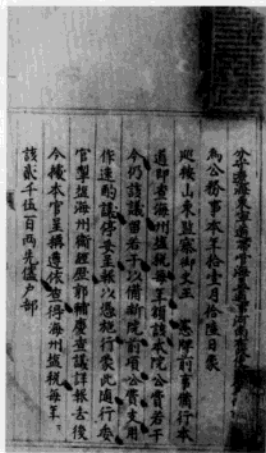 分守遼海東寧道帶管
為公務事本年拾壹月拾陸日蒙
巡按山東監察御史王 憲牌前事備行本
道即查海州塩稅每年額該本院公費若干
今仍該議留若干以備新院前項公費支用
作速酌議停妥呈報以憑施行蒙此隨行委
官掣塩海州衛經歷郭輔慶查議詳報去後
今據本官呈稱遵依查得海州塩稅每年
該貳千伍百両先儘戶部